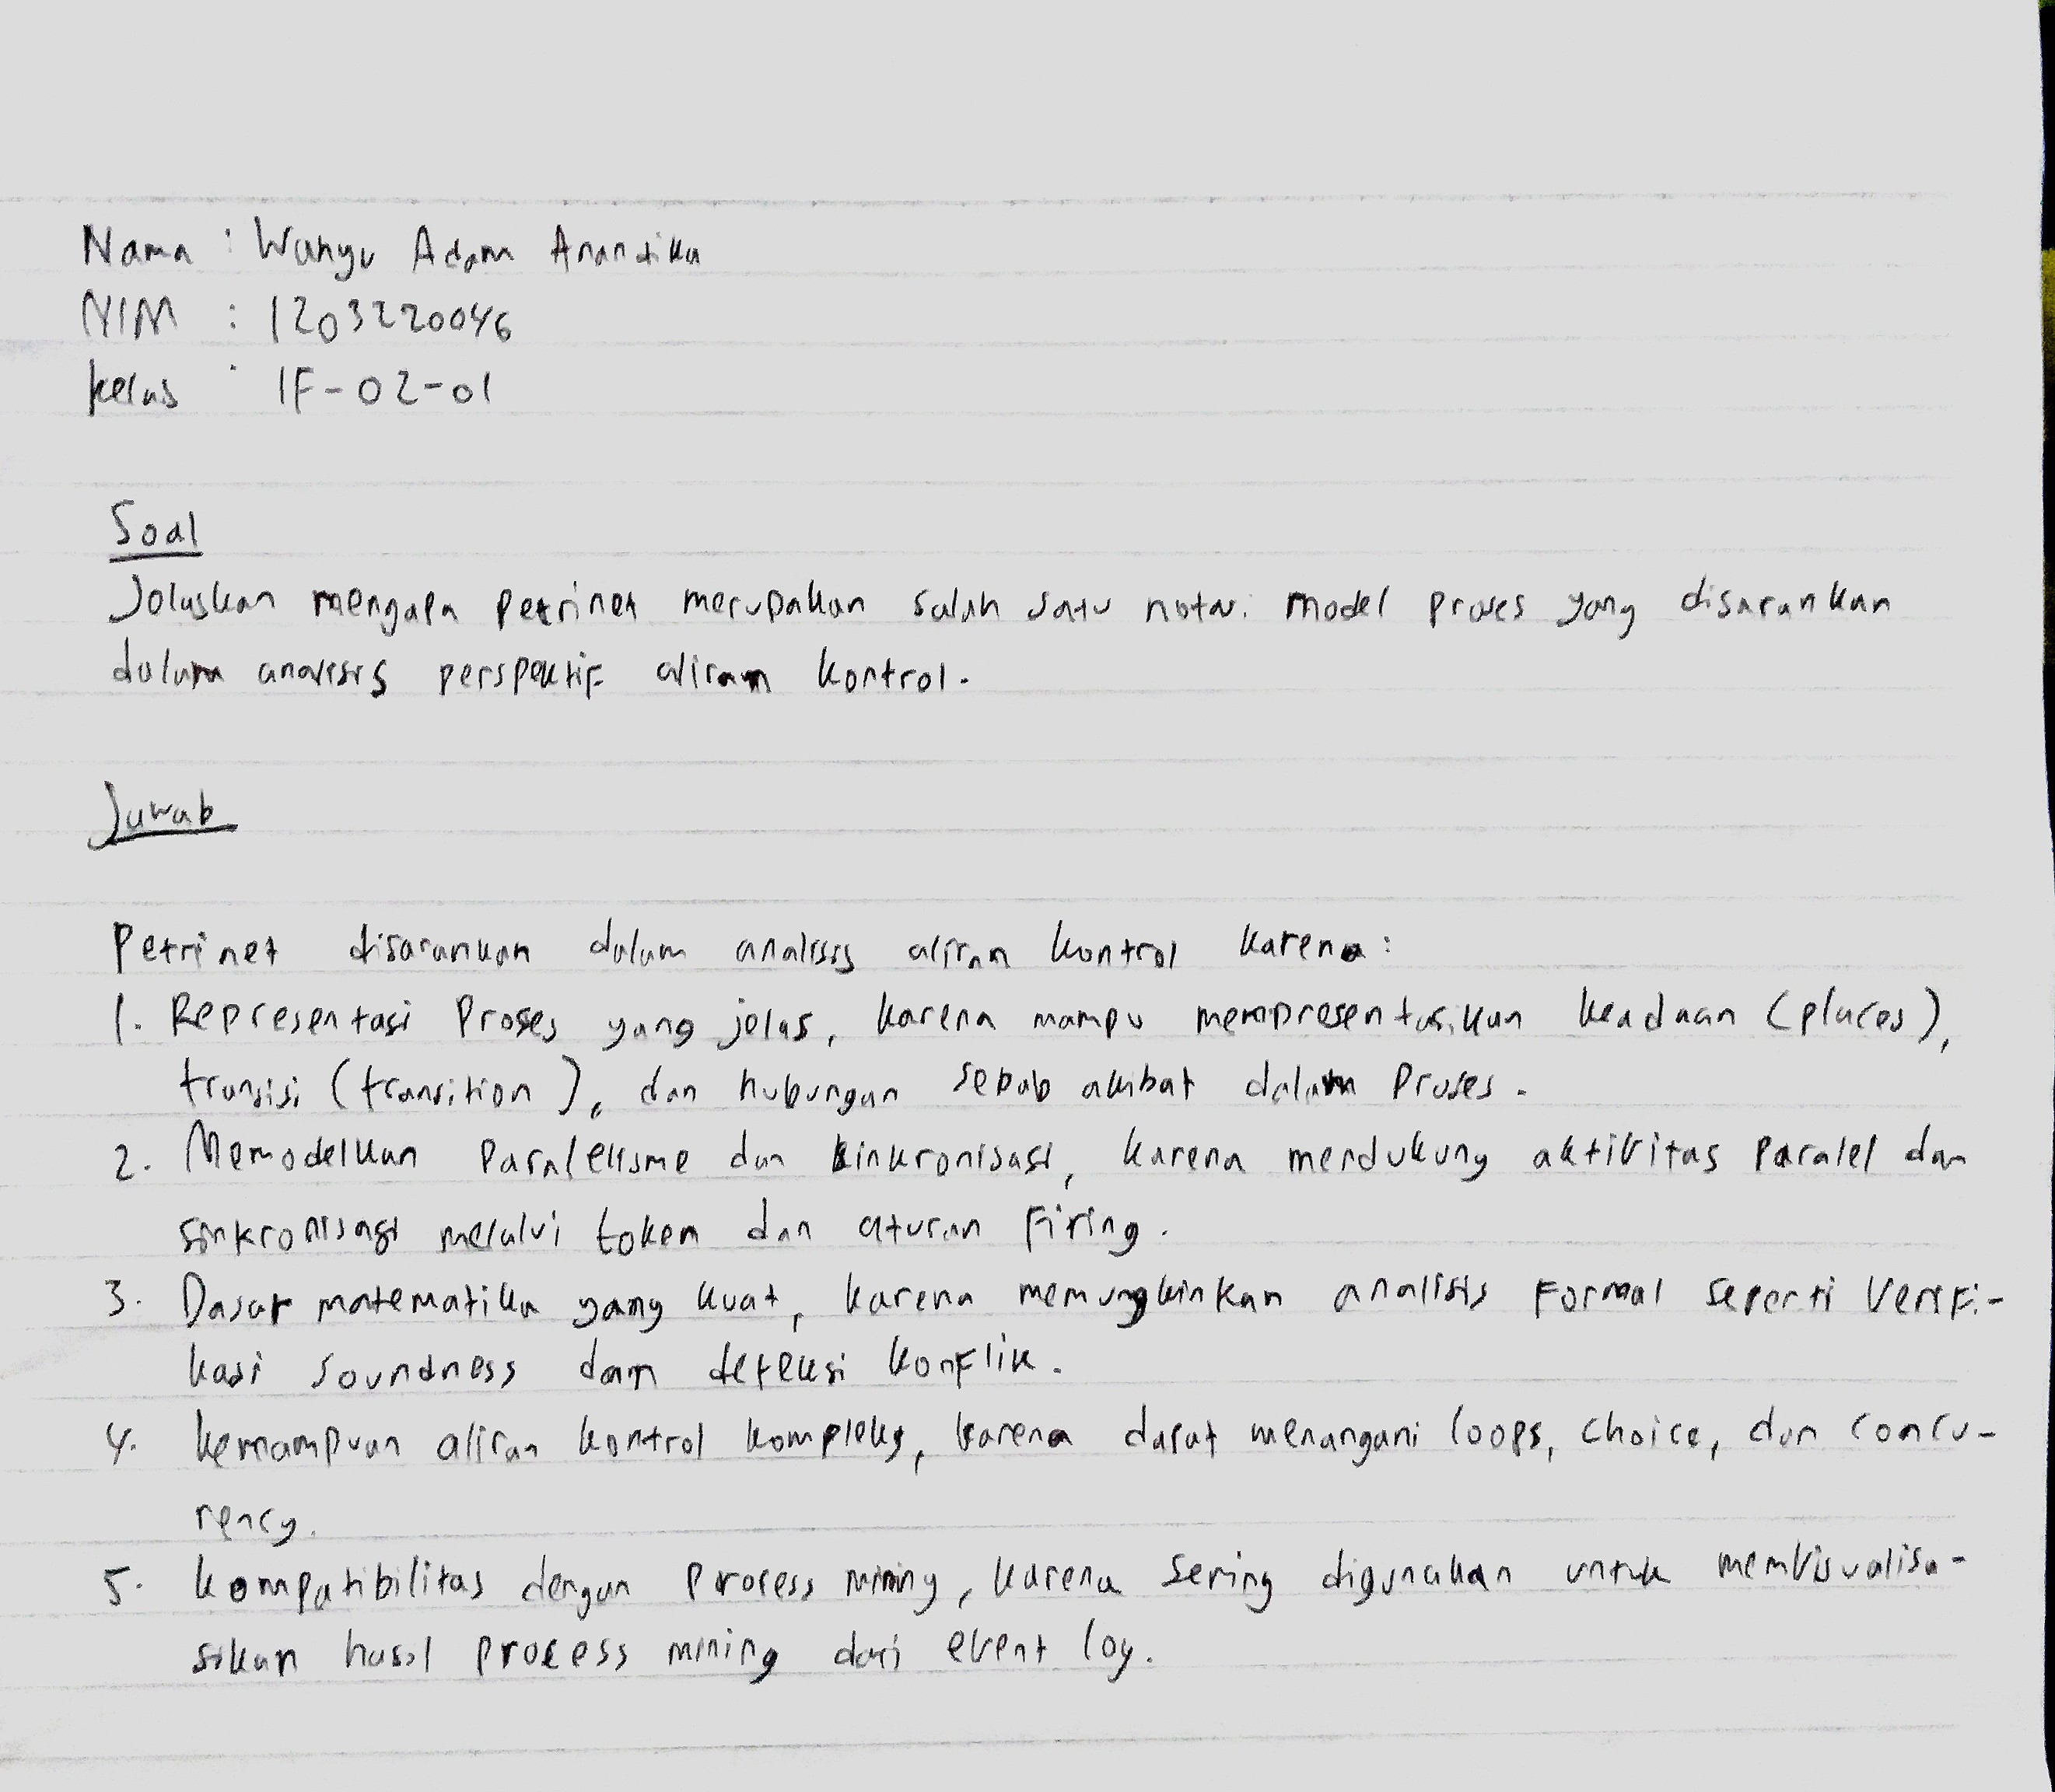 Nama : Wahyu Adam Anandika
NIM : 1203220046
kelas : IF-02-01
Soal
Jelaskan mengapa petrinet merupakan salah satu notasi model proses yang disarankan
dalam analisis perspektif aliran kontrol.
Jawab
Petrinet disarankan dalam analisis aliran kontrol karena :
1. Representasi Proses yang jelas, karena mampu mempresentasikan keadaan (places),
transisi (transition), dan hubungan sebab akibat dalam Proses.
2. Memodelkan Paralelisme dan sinkronisasi, karena mendukung aktivitas Paralel dan
sinkronisasi melalui token dan aturan Firing.
3. Dasar matematika yang kuat, karena memungkinkan analisis Formal seperti Verifi-
kasi soundness dan deteksi konflik.
4. kemampuan aliran kontrol kompleks, karena dapat menangani loops, choice, dan concu-
rency.
5. kompatibilitas dengan process mining, karena sering digunakan untuk memvisualisa-
sikan hasil process mining dari event log.